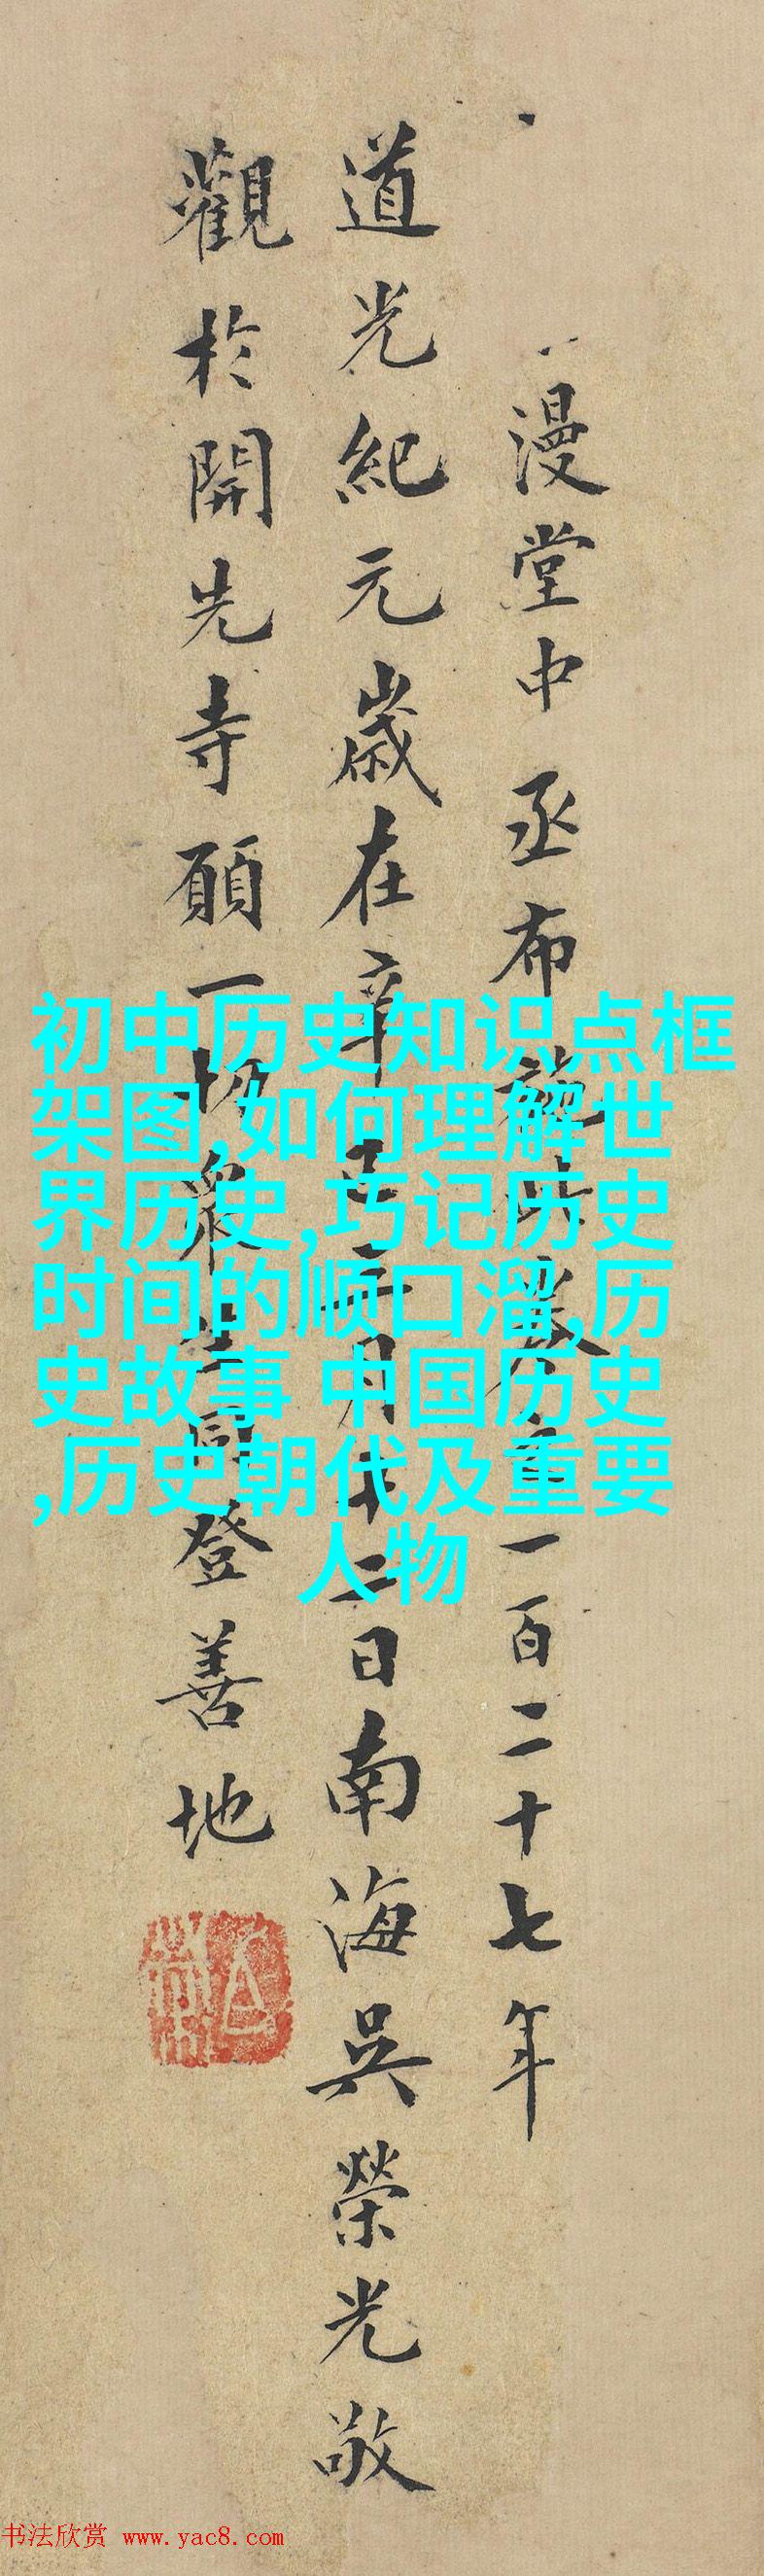 漫堂中丞布施此卷之一百二十七年
道光紀元歲在辛巳三月十二日南海吳榮光敬
觀於開先寺願一切眾生同登善地
初中历史知识点框
架图,如何理解世
界历史,巧记历史
时间的顺口溜,历
史故事 中国历史
,历史朝代及重要
人物
书法欣赏 www.yac8.com